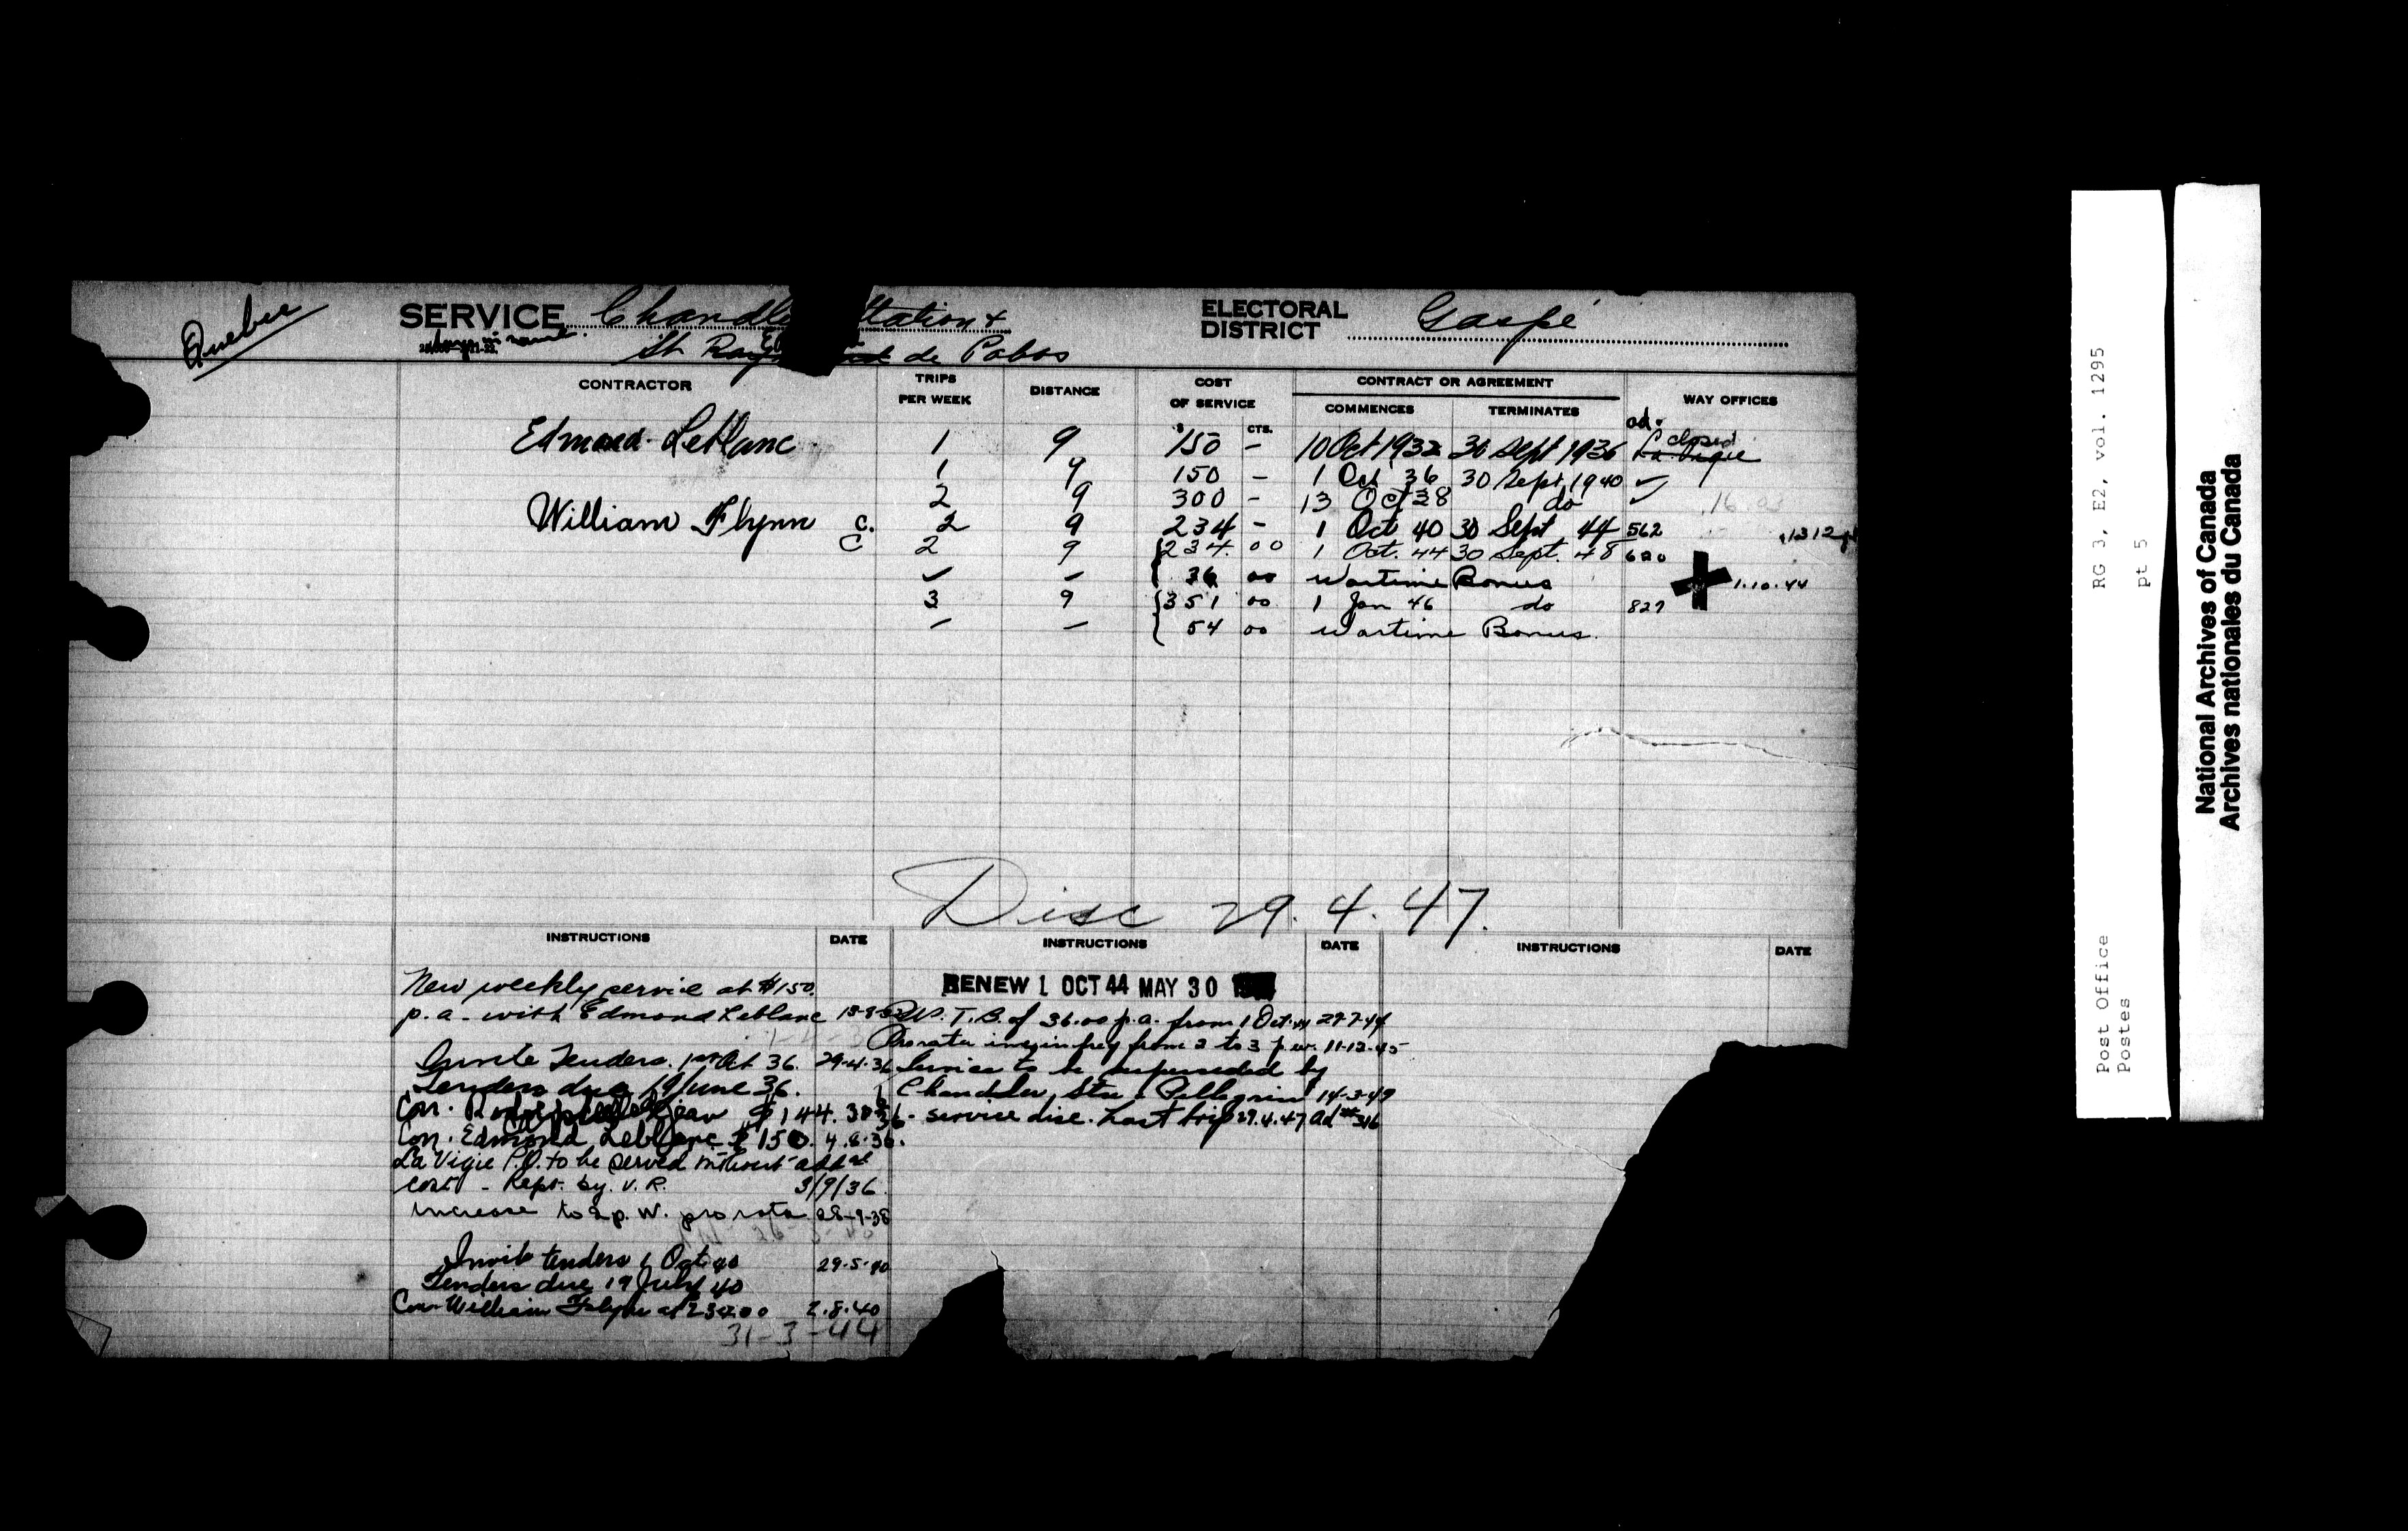 Quebec
SERVICE Chandl Station &
change in name.
St de Pabos
ELECTORAL DISTRICT Gaspé
CONTRACTOR TRIPS PER WEEK DISTANCE COST OF SERVICE CONTRACT OR AGREEMENT WAY OFFICES
$ CTS. COMMENCES TERMINATES
ad. closed
Edmond Leblanc 1 9 150 - 10 Oct 1932 30 Sept 1936 La Vigie
1 9 150 - 1 Oct 36 30 Sept. 1940 ✓
2 9 300 - 13 Oct 38 do ✓
William Flynn C. 2 9 234 - 1 Oct 40 30 Sept 44 562
C 2 9 {234. 00 1 Oct. 44 30 Sept. 48 620
✓ - 36 00 Wartime Bonus 1.10.44
3 9 {351 00 1 Jan 46 do 827
- - 54 00 Wartime Bonus.
Disc 29.4.47.
INSTRUCTIONS DATE INSTRUCTIONS DATE INSTRUCTIONS DATE
New weekly service at $150.
p.a. with Edmond Leblanc
Invite Tenders. 1st Oct 36. 29-4-36
Tenders due 19 June 36.
Con. $144.
Con. Edmond Leblanc $150. 4.8.36.
La Vigie P.O. to be served without addal
cost - Rept. by. V.R. 3/9/36
Increase to 2 p.w. pro rata 28-9-38
Invite tenders 1 Oct 40 29-5-40
Tenders due 19 July 40
Con William Flynn at 234.00 2.8.40
31-3-44
RENEW 1 OCT 44 MAY 30
W.T.B. of 36.00 p.a. from 1 Oct. 44 29-7-44
Prorata inc in freq from 2 to 3 p.w. 11-12-45
Service to be superseded by
Chandler Stn & Pellegrin 14-3-47
service disc. Last trip 29.4.47 ad# 316
Post Office RG 3, E2, vol. 1295
Postes pt 5
National Archives of Canada
Archives nationales du Canada